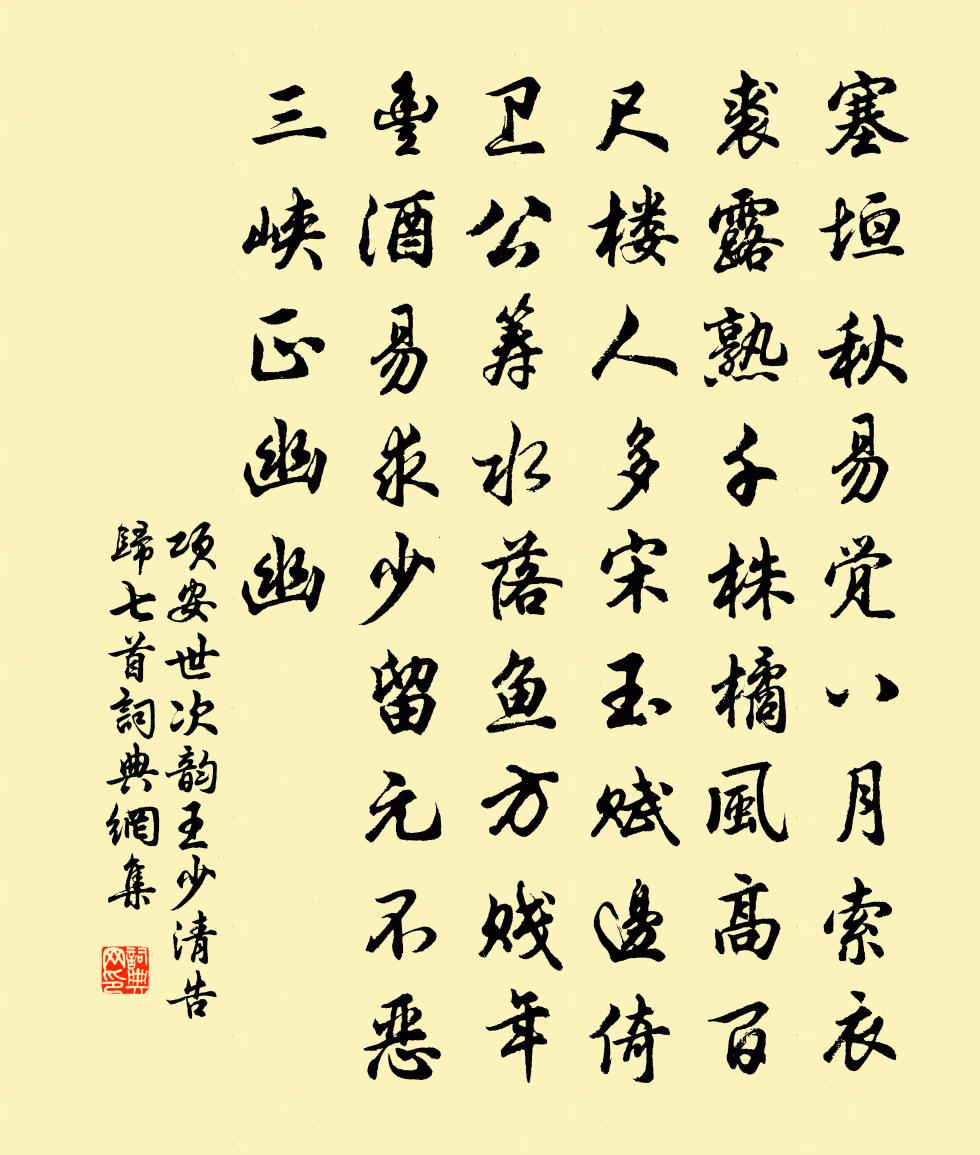 塞垣秋易觉八月索衣
裘露熟千株橘風高百
尺楼人多宋玉赋邊倚
卫公筹水落鱼方贱年
豊酒易求少留元不恶
三峡正幽幽
项安世次韵王少清告
歸七首詞典網集
詞典网印